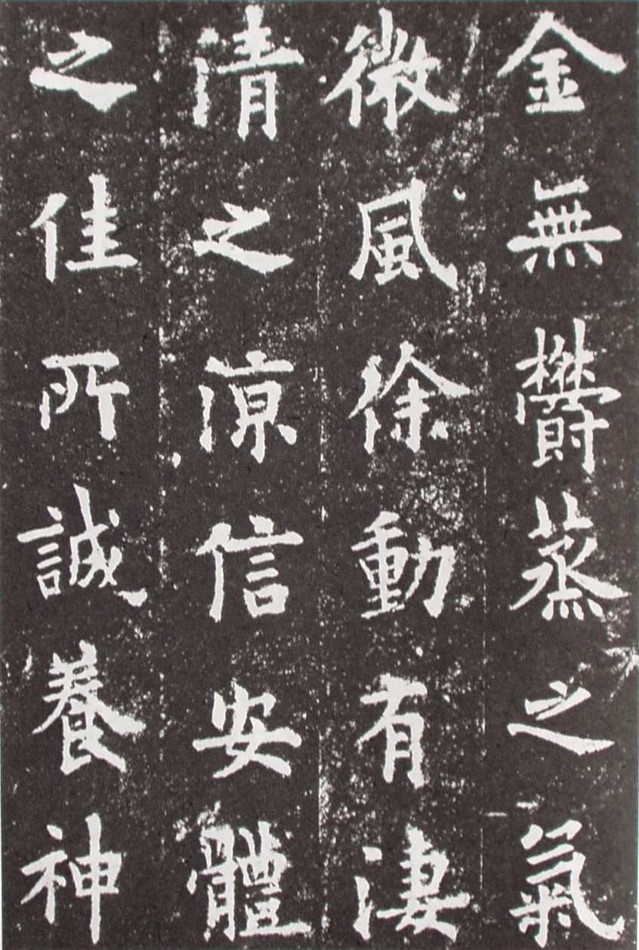 金無欝蒸之氣
微風徐動有淒
清之凉信安體
之佳所誠養神